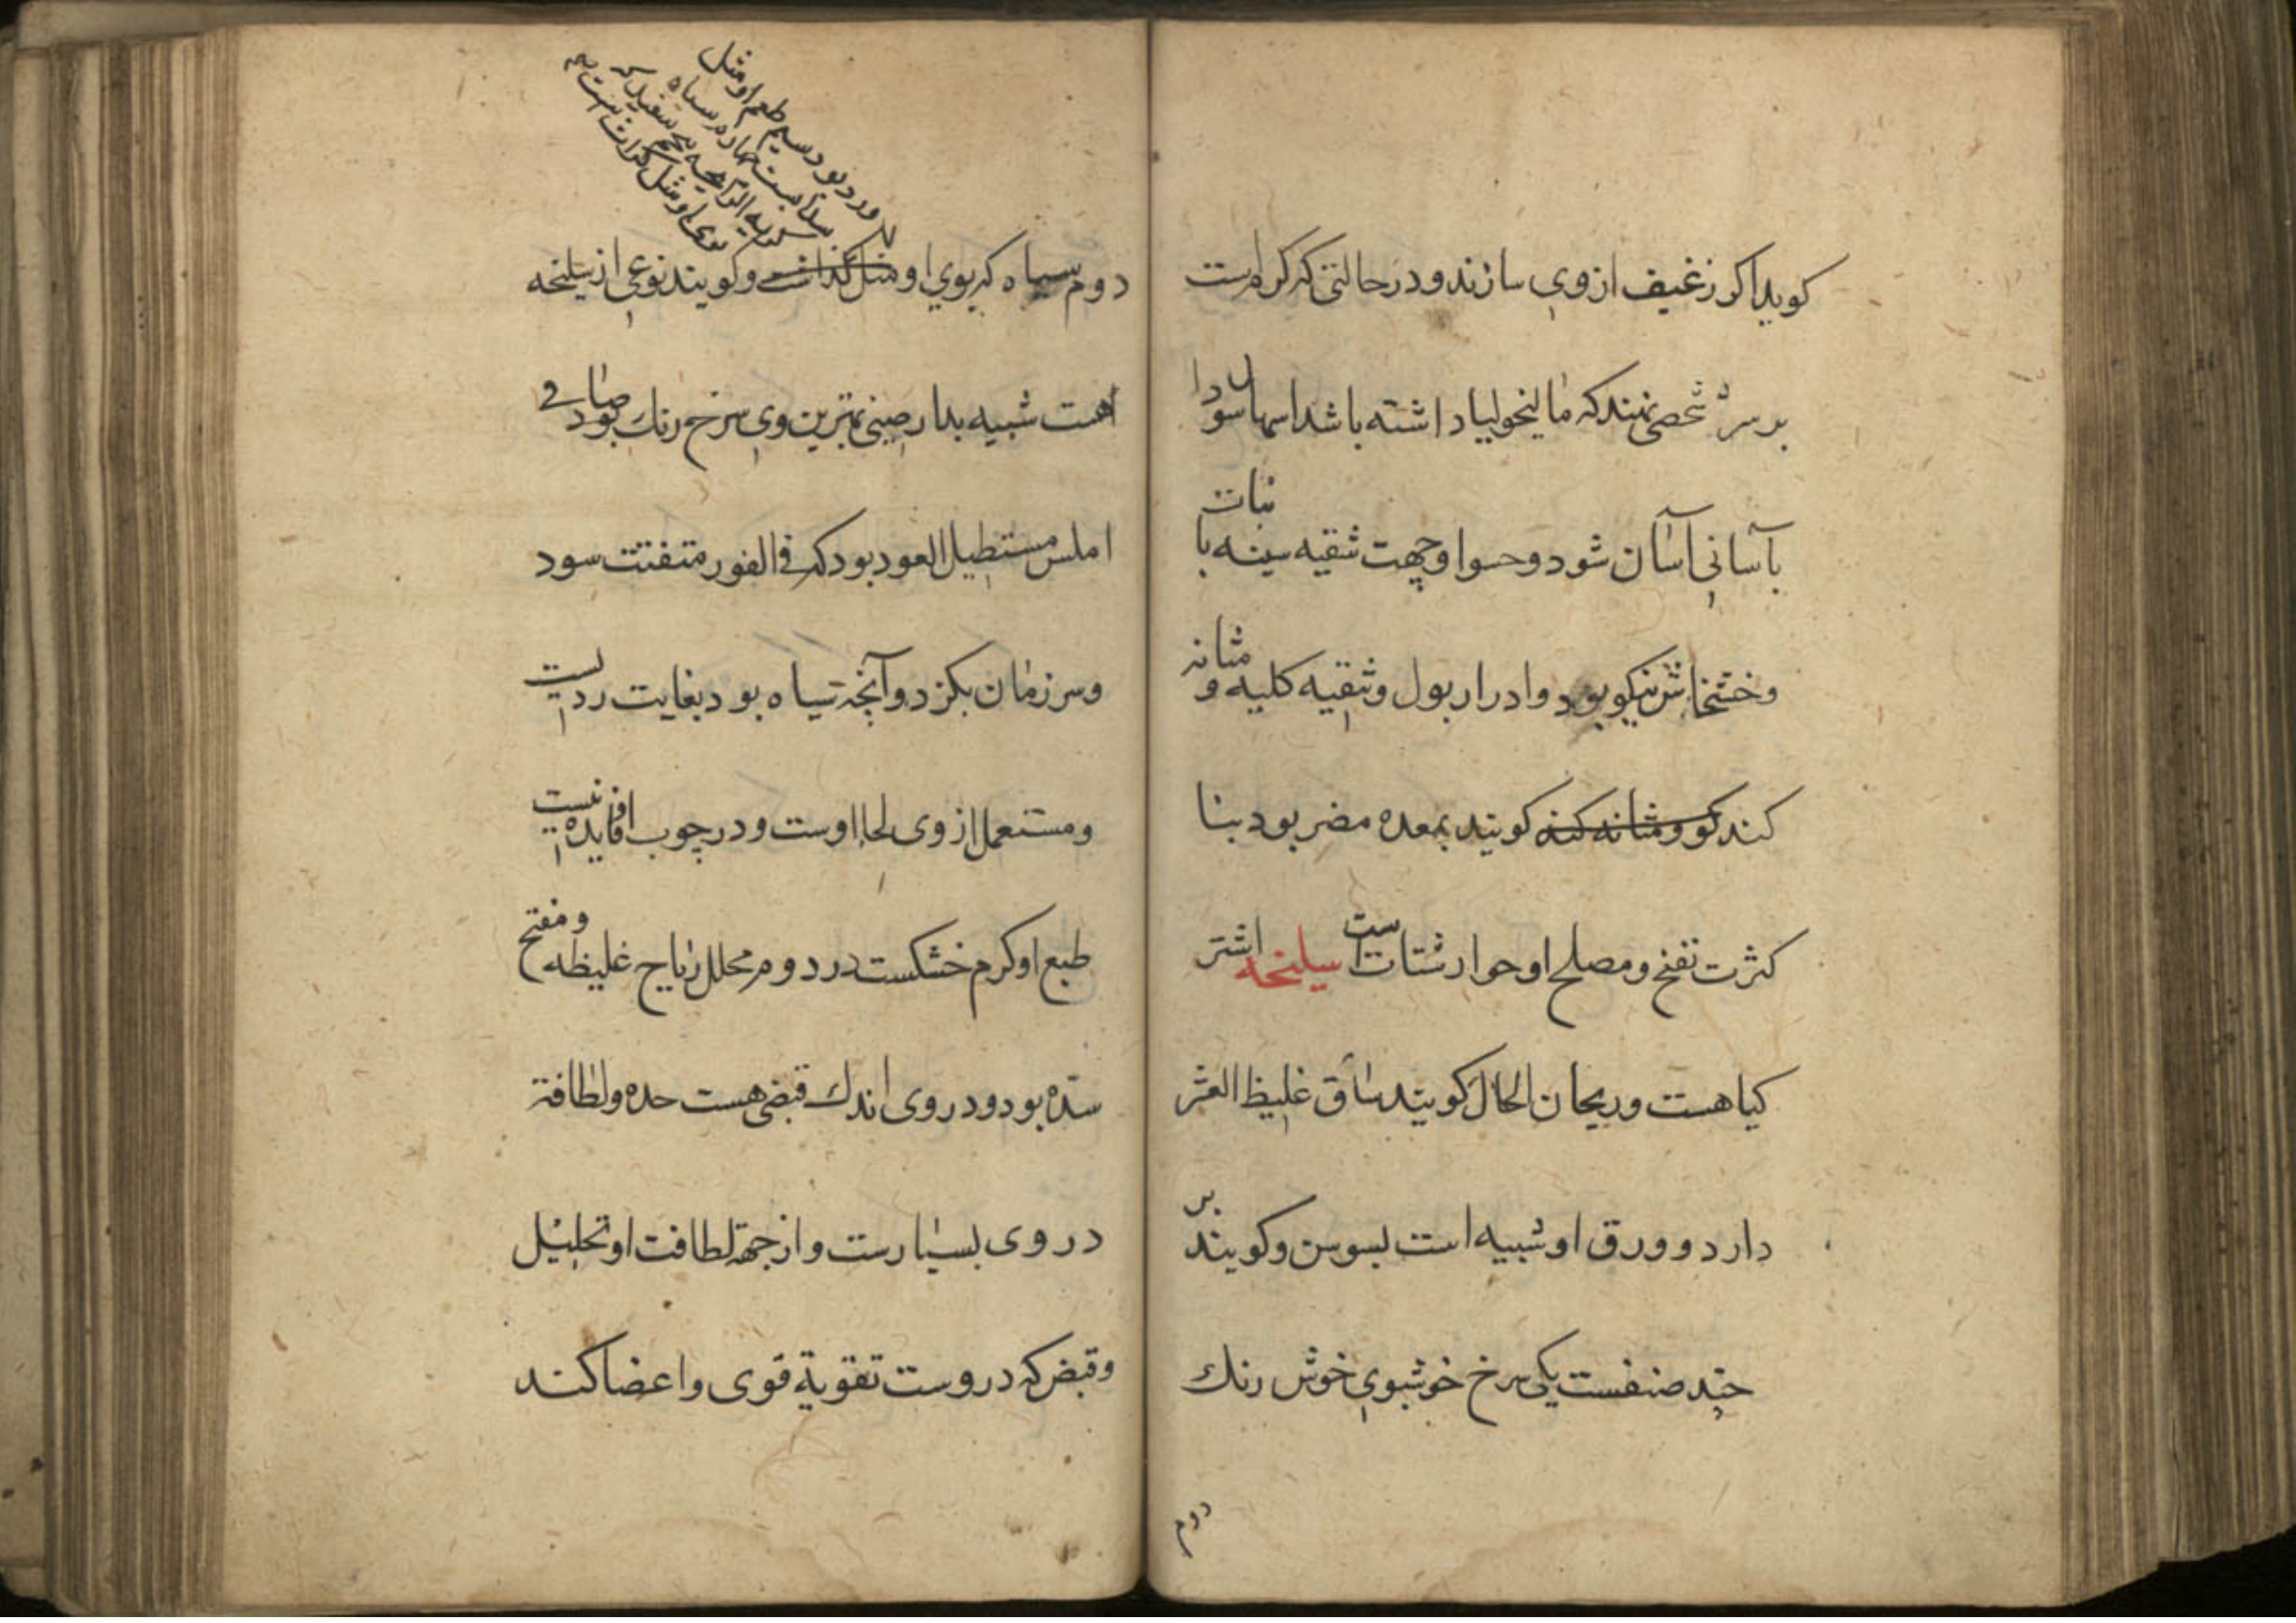 کویدا کر زغیف ازوی سازند و در حالتی که کرم است
بر سر شخصی نهند که مالیخولیا داشته باشد اسهال سودا
بآسانی آسان شود و حسوا و جهت تنقیه سینه با نبات
و خشخاش نیکو بود و ادرار بول و تنقیه کلیه و مثانه
کند کو و مثانه کند کویند بمعده مضر بود بنا
کثرت نفخ و مصلح او جوارشتات است سلیخه اشتر
کیاهست و ریحان الحال کویند ساق غلیظ القشر
دارد و ورق او شبیه است بسوسن و کویند بر
چند صنفست یکی سرخ خوشبوی خوش رنک
دوم
ورد بود سیم طعم او مثل
سدابست چهارم سیاه
کریه الرایحه پنجم سفید که
بوی او مثل کراث است
دوم سیاه که بوی او مثل کداشت و کویند نوعی از سلیخه
هست شبیه بدارصینی بهترین وی سرخ رنک بود صافی
املس مستطیل العود بود که فی الفور متفتت سود
و سر زمان بکزد و آنچه سیاه بود بغایت ردیست
و مستعمل از وی لحا اوست و در چوب او فایده نیست
طبع او کرم خشکست در دوم محلل ریاح غلیظه و مفتح
سده بود و در وی اندک قبضی هست حده و لطافة
در وی بسیارست و از جهة لطافت او تحلیل
و قبض که دروست تقویة قوی و اعضا کند